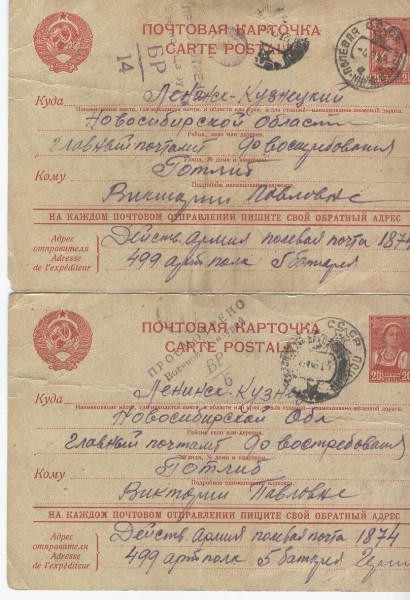 ПОЧТОВАЯ КАРТОЧКА
CARTE POSTALE
БР
14
СССР
20
Куда Ленинск-Кузнецкий
Наименование места, где находится почта, и области или края, а для станций - наименование железной дороги.
Новосибирской Области
Район, село или деревня.
Главный почтамт До востребования
Улица, № дома и квартиры.
Кому Готлиб
Подробное наименование адресата.
Виктории Павловне
НА КАЖДОМ ПОЧТОВОМ ОТПРАВЛЕНИИ ПИШИТЕ СВОЙ ОБРАТНЫЙ АДРЕС
Адрес отправителя
Adresse de l'expéditeur
Действ. Армия полевая почта 1874
499 артполк 5 батарея
ПОЧТОВАЯ КАРТОЧКА
CARTE POSTALE
ПРОСМОТРЕНО
Военной
БР
6
СССР
20
Куда Ленинск-Кузн
Новосибирской Обл
Район, село или деревня.
Главный почтамт До востребования
Улица, № дома и квартиры.
Кому Готлиб
Подробное наименование адресата.
Виктории Павловне
НА КАЖДОМ ПОЧТОВОМ ОТПРАВЛЕНИИ ПИШИТЕ СВОЙ ОБРАТНЫЙ АДРЕС
Адрес отправителя
Adresse de l'expéditeur
Действ. Армия полевая почта 1874
499 артполк 5 батарея